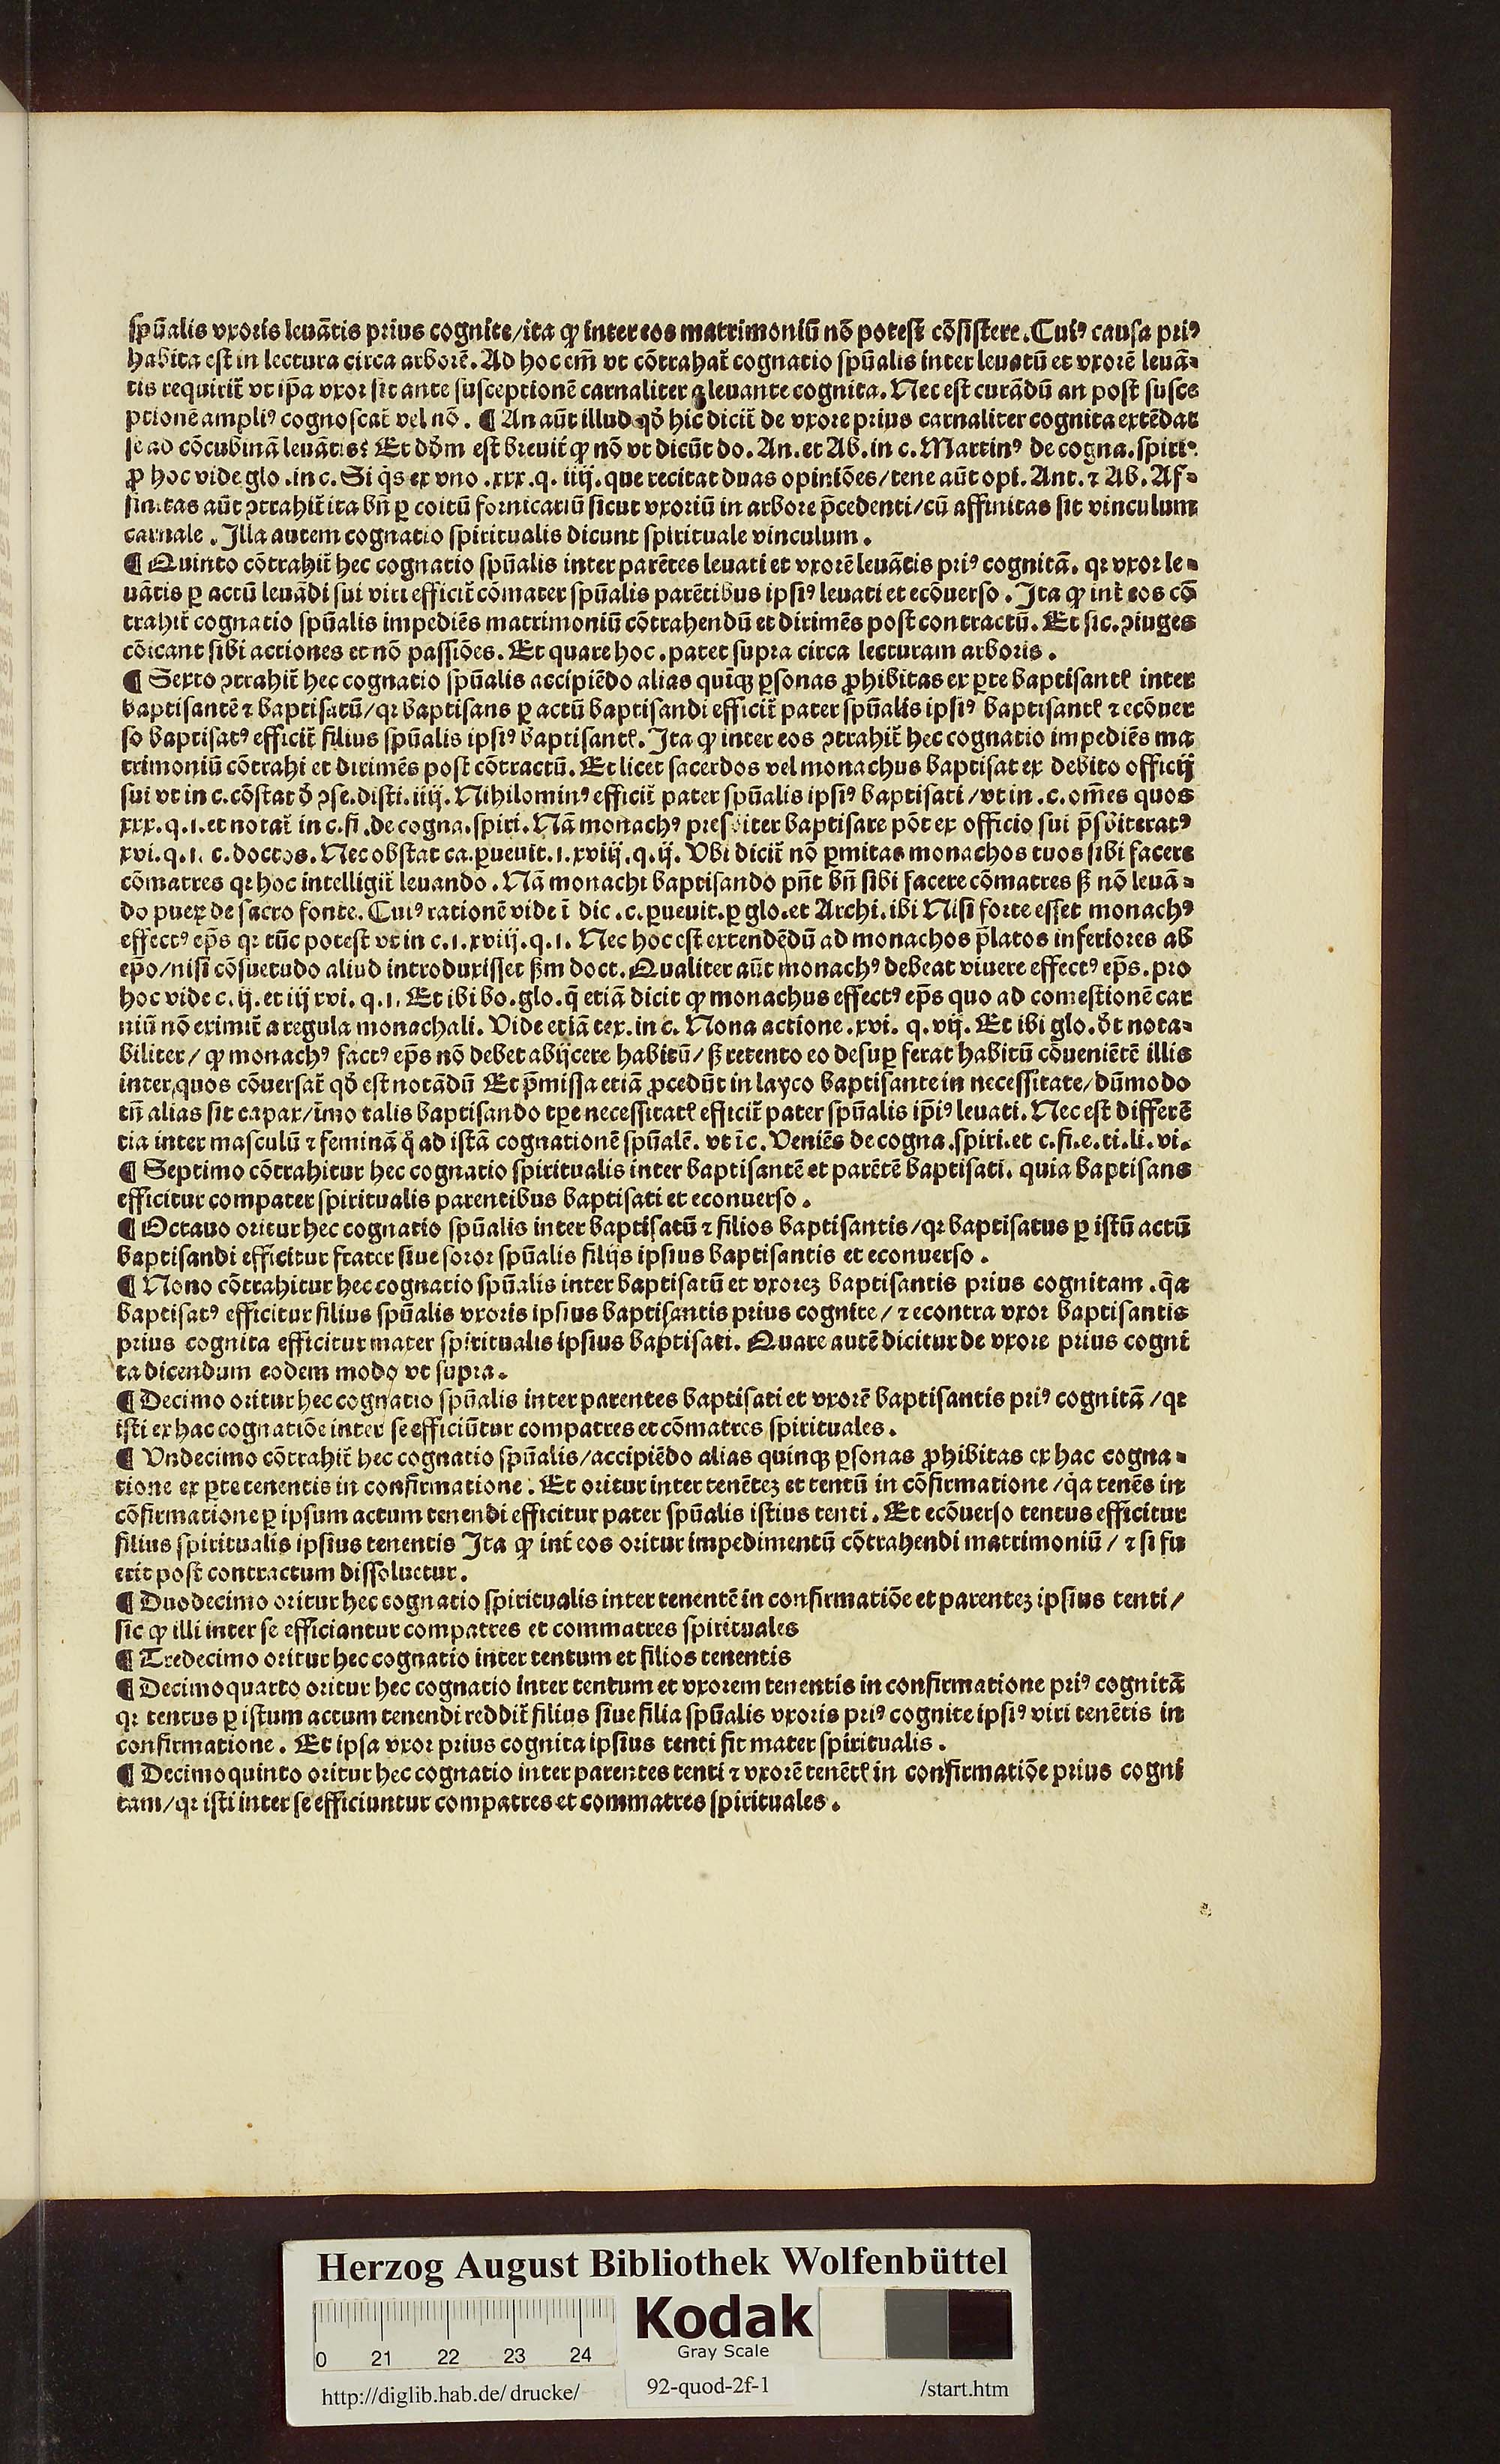 spũalis vxoris leuãtis prius cognite/ita ꝙ inter eos matrimoniũ nõ potest cõsistere. Cuiꝰ causa priꝰ
habita est in lectura circa arborẽ. Ad hoc em̃ vt cõtrahat᷑ cognatio spũalis inter leuatũ et vxorẽ leuã-
tis requirit᷑ vt ip̃a vxor sit ante susceptionẽ carnaliter a leuante cognita. Nec est curãdũ an post susce
ptionẽ ampliꝰ cognoscat᷑ vel nõ. ¶ An aũt illud qď hic dicit᷑ de vxore prius carnaliter cognita extẽdat
se ad cõcubinã leuãtis? Et dďm est breuit᷑ ꝙ nõ vt dicũt do. An. et Ab. in c. Martinꝰ de cogna. spiri.
ꝓ hoc vide glo. in c. Si q̇s ex vno .xxx. q. iiij. que recitat duas opiniões/tene aũt opi. Ant. ⁊ Ab. Af-
finitas aũt ꝯtrahit᷑ ita bñ ꝑ coitũ fornicariũ sicut vxoriũ in arbore p̃cedenti/cũ affinitas sit vinculum
carnale. Illa autem cognatio spiritualis dicunt spirituale vinculum.
¶ Quinto cõtrahit᷑ hec cognatio spũalis inter parẽtes leuati et vxorẽ leuãtis priꝰ cognitã. qꝛ vxor le-
uãtis ꝑ actũ leuãdi sui viri efficit᷑ cõmater spũalis parẽtibus ipsiꝰ leuati et ecõuerso. Ita ꝙ int᷑ eos cõ
trahit᷑ cognatio spũalis impediẽs matrimoniũ cõtrahendũ et dirimẽs post contractũ. Et sic. ꝯiuges
cõicant sibi actiones et nõ passiões. Et quare hoc. patet supra circa lecturam arboris.
¶ Sexto ꝯtrahit᷑ hec cognatio spũalis accipiẽdo alias quinqꝫ ꝑsonas ꝓhibitas ex ꝑte baptisantꝭ inter
baptisantẽ ⁊ baptisatũ/qꝛ baptisans ꝑ actũ baptisandi efficit᷑ pater spũalis ipsiꝰ baptisantꝭ ⁊ ecõuer
so baptisatꝰ efficit᷑ filius spũalis ipsiꝰ baptisantꝭ. Ita ꝙ inter eos ꝯtrahit᷑ hec cognatio impediẽs ma
trimoniũ cõtrahi et dirimẽs post cõtractũ. Et licet sacerdos vel monachus baptisat ex debito officij
sui vt in c. cõstat ď ꝯse. disti. iiij. Nihilominꝰ efficit᷑ pater spũalis ipsiꝰ baptisati/vt in .c. om̃es quos
xxx. q. i. et notat᷑ in c. fi. de cogna. spiri. Nã monachꝰ presbiter baptisare põt ex officio sui p̃sbiteratꝰ
xvi. q. i. c. doctos. Nec obstat ca. ꝑueuit. i. xviij. q. ij. Vbi dicit᷑ nõ ꝑmitas monachos tuos sibi facere
cõmatres qꝛ hoc intelligit᷑ leuando. Nã monachi baptisando pñt bñ sibi facere cõmatres sꝫ nõ leuã-
do pueꝝ de sacro fonte. Cuiꝰ rationẽ vide ĩ dic .c. ꝑueuit. ꝑ glo. et Archi. ibi Nisi forte esset monachꝰ
effectꝰ ep̃s qꝛ tũc potest vt in c. i. xviij. q. i. Nec hoc est extendẽdũ ad monachos p̃latos inferiores ab
ep̃o/nisi cõsuetudo aliud introduxisset ẞm doct. Qualiter aũt monachꝰ debeat viuere effectꝰ ep̃s. pro
hoc vide c. ij. et iij xvi. q. i. Et ibi bo. glo. q̃ etiã dicit ꝙ monachus effectꝰ ep̃s quo ad comestionẽ car
niũ nõ eximit᷑ a regula monachali. Vide etiã tex. in c. Nona actione .xvi. q. vij. Et ibi glo. ďt nota-
biliter/ ꝙ monachꝰ factꝰ ep̃s nõ debet abijcere habitũ/ sꝫ retento eo desuꝑ ferat habitũ cõueniẽtẽ illis
inter quos cõuersat᷑ qď est notãdũ Et p̃missa etiã ꝓcedũt in layco baptisante in necessitate/ dũmodo
tñ alias sit capax/ ĩmo talis baptisando tꝑe necessitatꝭ efficit᷑ pater spũalis ip̃iꝰ leuati. Nec est differẽ
tia inter masculũ ⁊ feminã q̊ ad istã cognationẽ spũalẽ. vt ĩ c. Veniẽs de cogna. spiri. et c. fi. e. ti. li. vi.
¶ Septimo cõtrahitur hec cognatio spiritualis inter baptisantẽ et parẽtẽ baptisati. quia baptisans
efficitur compater spiritualis parentibus baptisati et econuerso.
¶ Octauo oritur hec cognatio spũalis inter baptisatũ ⁊ filios baptisantis/qꝛ baptisatus ꝑ istũ actũ
baptisandi efficitur frater siue soror spũalis filijs ipsius baptisantis et econuerso.
¶ Nono cõtrahitur hec cognatio spũalis inter baptisatũ et vxoreꝫ baptisantis prius cognitam. q̃a
baptisatꝰ efficitur filius spũalis vxoris ipsius baptisantis prius cognite/ ⁊ econtra vxor baptisantis
prius cognita efficitur mater spiritualis ipsius baptisati. Quare autẽ dicitur de vxore prius cogni
ta dicendum eodem modo vt supra.
¶ Decimo oritur hec cognatio spũalis inter parentes baptisati et vxorẽ baptisantis priꝰ cognitã/qꝛ
isti ex hac cognatiõe inter se efficiũtur compatres et cõmatres spirituales.
¶ Vndecimo cõtrahit᷑ hec cognatio spũalis/accipiẽdo alias quinqꝫ ꝑsonas ꝓhibitas ex hac cogna-
tione ex ꝑte tenentis in confirmatione. Et oritur inter tenẽteꝫ et tentũ in cõfirmatione/q̇a tenẽs in
cõfirmatione ꝑ ipsum actum tenendi efficitur pater spũalis istius tenti. Et ecõuerso tentus efficitur
filius spiritualis ipsius tenentis Ita ꝙ int᷑ eos oritur impedimentũ cõtrahendi matrimoniũ/ ⁊ si fu
erit post contractum dissoluetur.
¶ Duodecimo oritur hec cognatio spiritualis inter tenentẽ in confirmatiõe et parenteꝫ ipsius tenti/
sic ꝙ illi inter se efficiantur compatres et commatres spirituales
¶ Tredecimo oritur hec cognatio inter tentum et filios tenentis
¶ Decimoquarto oritur hec cognatio inter tentum et vxorem tenentis in confirmatione priꝰ cognitã
qꝛ tentus ꝑ istum actum tenendi reddit᷑ filius siue filia spũalis vxoris priꝰ cognite ipsiꝰ viri tenẽtis in
confirmatione. Et ipsa vxor prius cognita ipsius tenti fit mater spiritualis.
¶ Decimoquinto oritur hec cognatio inter parentes tenti ⁊ vxorẽ tenẽtꝭ in confirmatiõe prius cogni
tam/qꝛ isti inter se efficiuntur compatres et commatres spirituales.
Herzog August Bibliothek Wolfenbüttel
Kodak
Gray Scale
0 21 22 23 24
http://diglib.hab.de/drucke/ 92-quod-2f-1 /start.htm